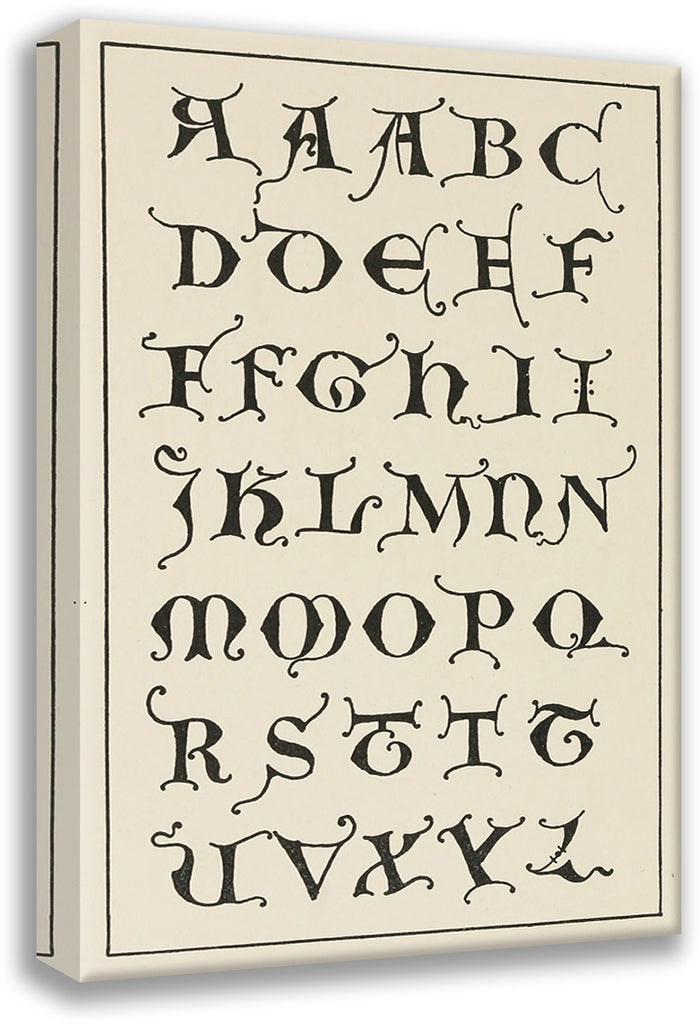 A A A B C
D D E E F
F F G H I I
J K L M N N
M M O P Q
R S T T T
U V X Y Z